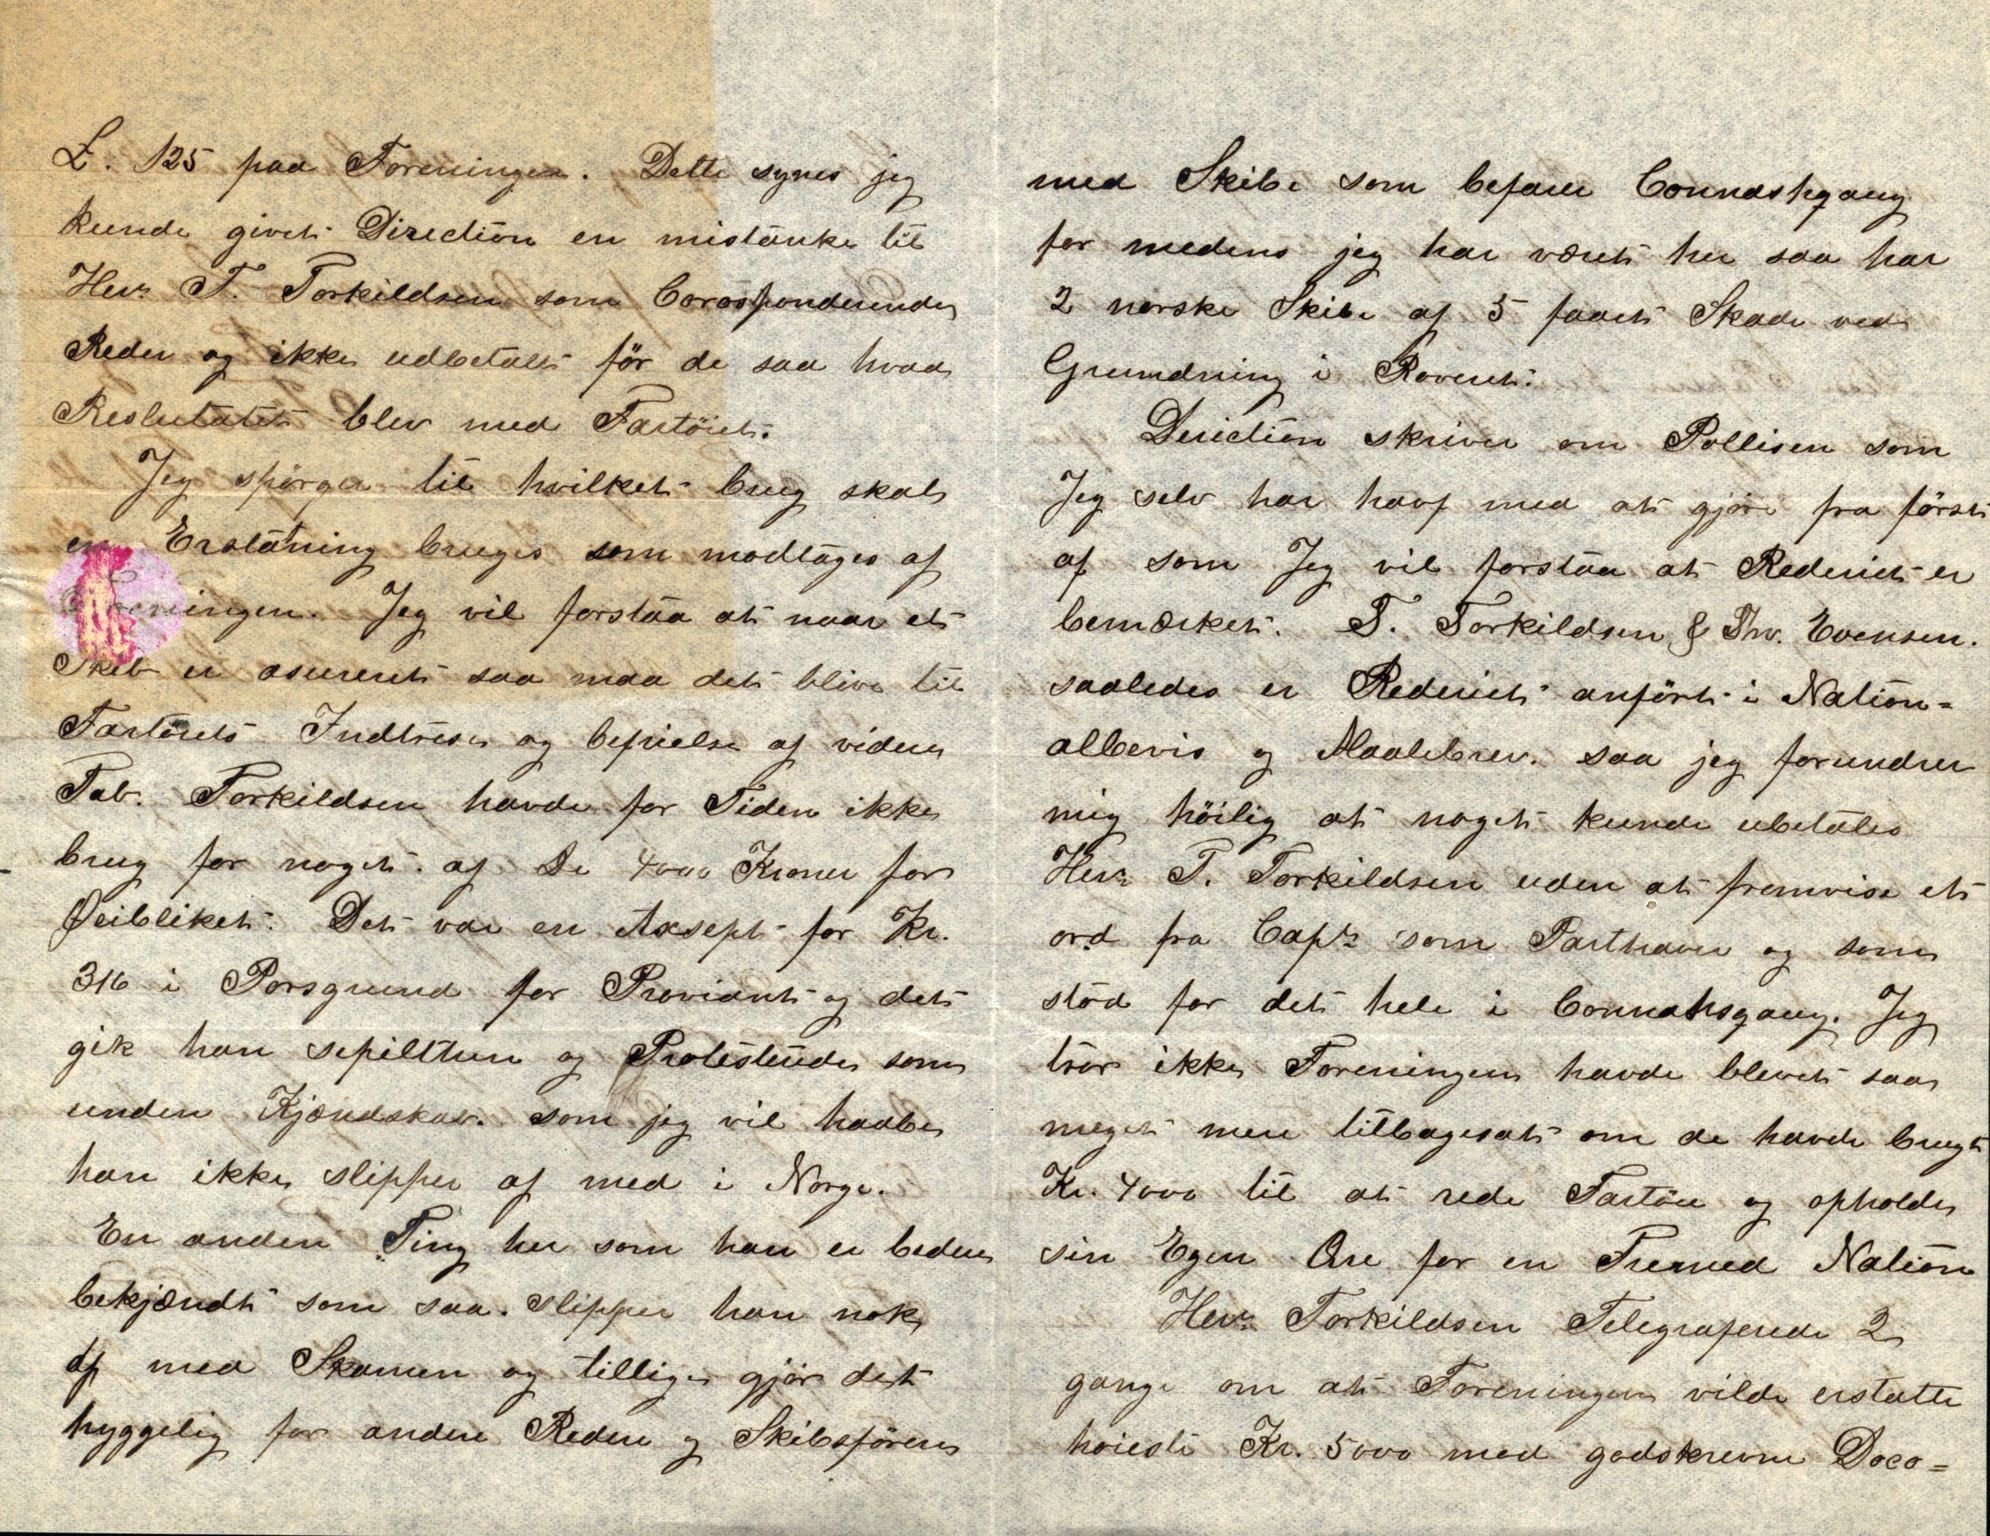 £. 125 paa Foreningen. Dette synes jeg
kunde givet Direction en mistanke til
Herr T. Torkildsen som Corosponderende
Reder og ikke udbetalt før de saa hvad
Reslutatet blev med Fartöiet.
Jeg spörger til hvilket brug skal
en Erstatning bruges som modtages af
Foreningen. Jeg vil forstaa at naar et
Skib er asureret saa maa det blive til
Fartöiets Indtræse og befrielse af videre
Tab. Torkildsen havde for Tiden ikke
brug for noget af De 4000 Kroner for
Øeibliket. Det var en Axsept for Kr.
316 i Porsgrund for Proviant og det
gik han og Protistende som
under Kjændskab. som jeg vil haabe
han ikke slipper af med i Norge.
En anden Ting her som han er bedere
bekjændt som saa. slipper han nok
af med Skamen og tillige gjör det
hyggelig for andere Redere og Skibsförere
med Skibe som befarer Connashqauy
for medens jeg har været her saa har
2 norske Skibe af 5 faaet Skade ved
Grundning i Roveret.
Deriction skriver om Pollisen som
Jeg selv har havf med at gjöre fra först
af som Jeg vil forstaa at Rederiet er
bemærket. T. Torkildsen & Thv. Evensen.
saaledes er Rederiet anfört i Nation=
albevis og Maalebrev. saa jeg forundrer
mig höilig at noget kunde ubetales
Herr T. Torkildsen uden at fremvise et
ord fra Capt som Parthaver og som
stöd for det hele i Connahsqauy. Jeg
tror ikke Foreningen havde blevet saa
meget mere tilbagesat om de havde brugt
Kr. 4000 til at rede Fartöie og opholde
sin Egen Ære for en Fremed Nation
Herr Torkildsen Telegraferede 2
gange om at Foreningen vilde erstatte
höiest Kr. 5000 mod godskrevne Doco=